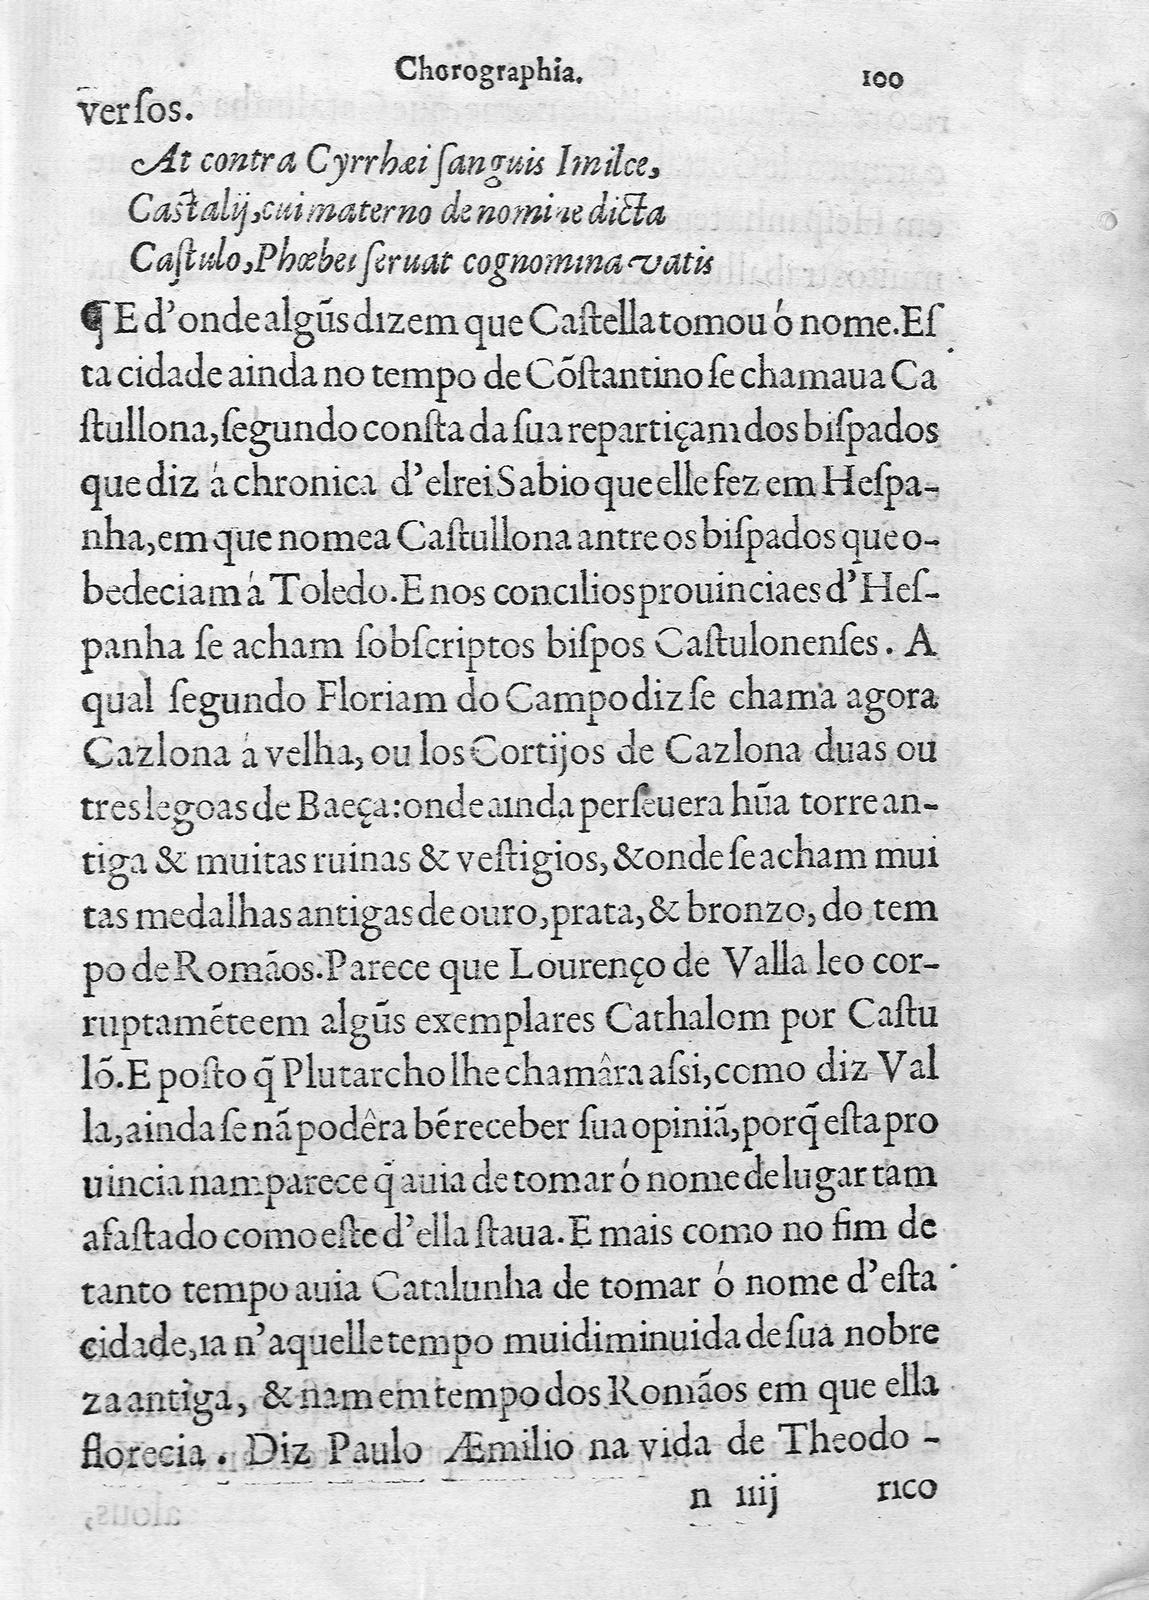 Chorographia. 100
verſos.
At contra Cyrrhæi ſanguis Imilce,
Caſtalij, cui materno de nomine dicta
Caſtulo, Phœbei ſeruat cognomina vatis
¶ E d'onde algũs dizem que Caſtella tomou ó nome. Eſ
ta cidade ainda no tempo de Cõſtantino ſe chamaua Ca
ſtullona, ſegundo conſta da ſua repartiçam dos biſpados
que diz á chronica d'elrei Sabio que elle fez em Heſpa-
nha, em que nomea Caſtullona antre os biſpados que o-
bedeciam á Toledo. E nos concilios prouinciaes d'Heſ-
panha ſe acham ſobſcriptos biſpos Caſtulonenſes. A
qual ſegundo Floriam do Campo diz ſe chama agora
Cazlona á velha, ou los Cortijos de Cazlona duas ou
tres legoas de Baeça: onde ainda perſeuera hũa torre an-
tiga & muitas ruinas & veſtigios, & onde ſe acham mui
tas medalhas antigas de ouro, prata, & bronzo, do tem
po de Romãos. Parece que Lourenço de Valla leo cor-
ruptamẽte em algũs exemplares Cathalom por Caſtu
lõ. E poſto q̃ Plutarcho lhe chamâra aſsi, como diz Val
la, ainda ſe nã podêra bẽ receber ſua opiniã, porq̃ eſta pro
uincia nam parece q̃ auia de tomar ó nome de lugar tam
afaſtado como eſte d'ella ſtaua. E mais como no fim de
tanto tempo auia Catalunha de tomar ó nome d'eſta
cidade, ia n'aquelle tempo mui diminuida de ſua nobre
za antiga, & nam em tempo dos Romãos em que ella
florecia. Diz Paulo Æmilio na vida de Theodo-
n iiij rico